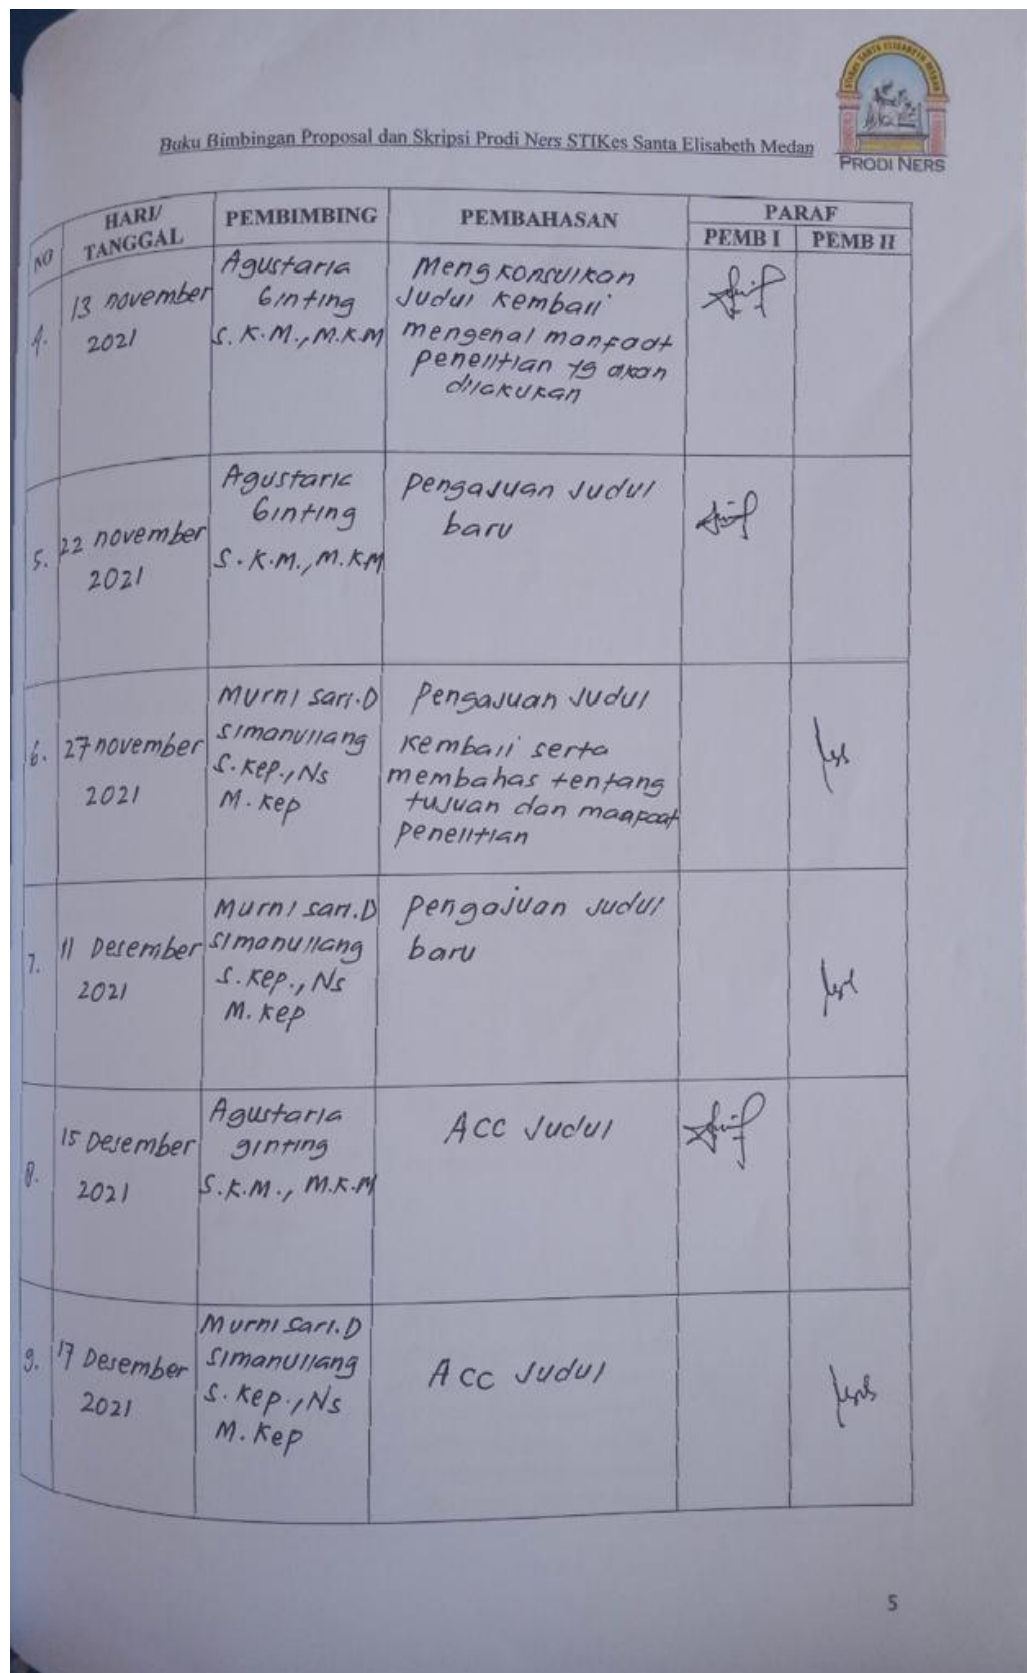 STIKES SANTA ELISABETH MEDAN
PRODI NERS
Buku Bimbingan Proposal dan Skripsi Prodi Ners STIKes Santa Elisabeth Medan
NO
HARI/
TANGGAL
PEMBIMBING
PEMBAHASAN
PARAF
PEMB I
PEMB II
4.
13 november
2021
Agustaria
Ginting
S.K.M., M.K.M
Mengkonsulkan
Judul kembali
mengenal manfaat
penelitian yg akan
dilakukan
5.
22 november
2021
Agustaria
Ginting
S.K.M., M.KM
Pengajuan Judul
baru
6.
27 november
2021
Murni sari.D
simanullang
S.Kep., Ns
M.Kep
Pengajuan Judul
kembali serta
membahas tentang
tujuan dan manfaat
penelitian
7.
11 Desember
2021
Murni sari.D
simanullang
S.Kep., Ns
M.Kep
Pengajuan Judul
baru
8.
15 Desember
2021
Agustaria
ginting
S.K.M., M.K.M
Acc Judul
9.
17 Desember
2021
Murni sari.D
simanullang
S.Kep., Ns
M.Kep
Acc Judul
5